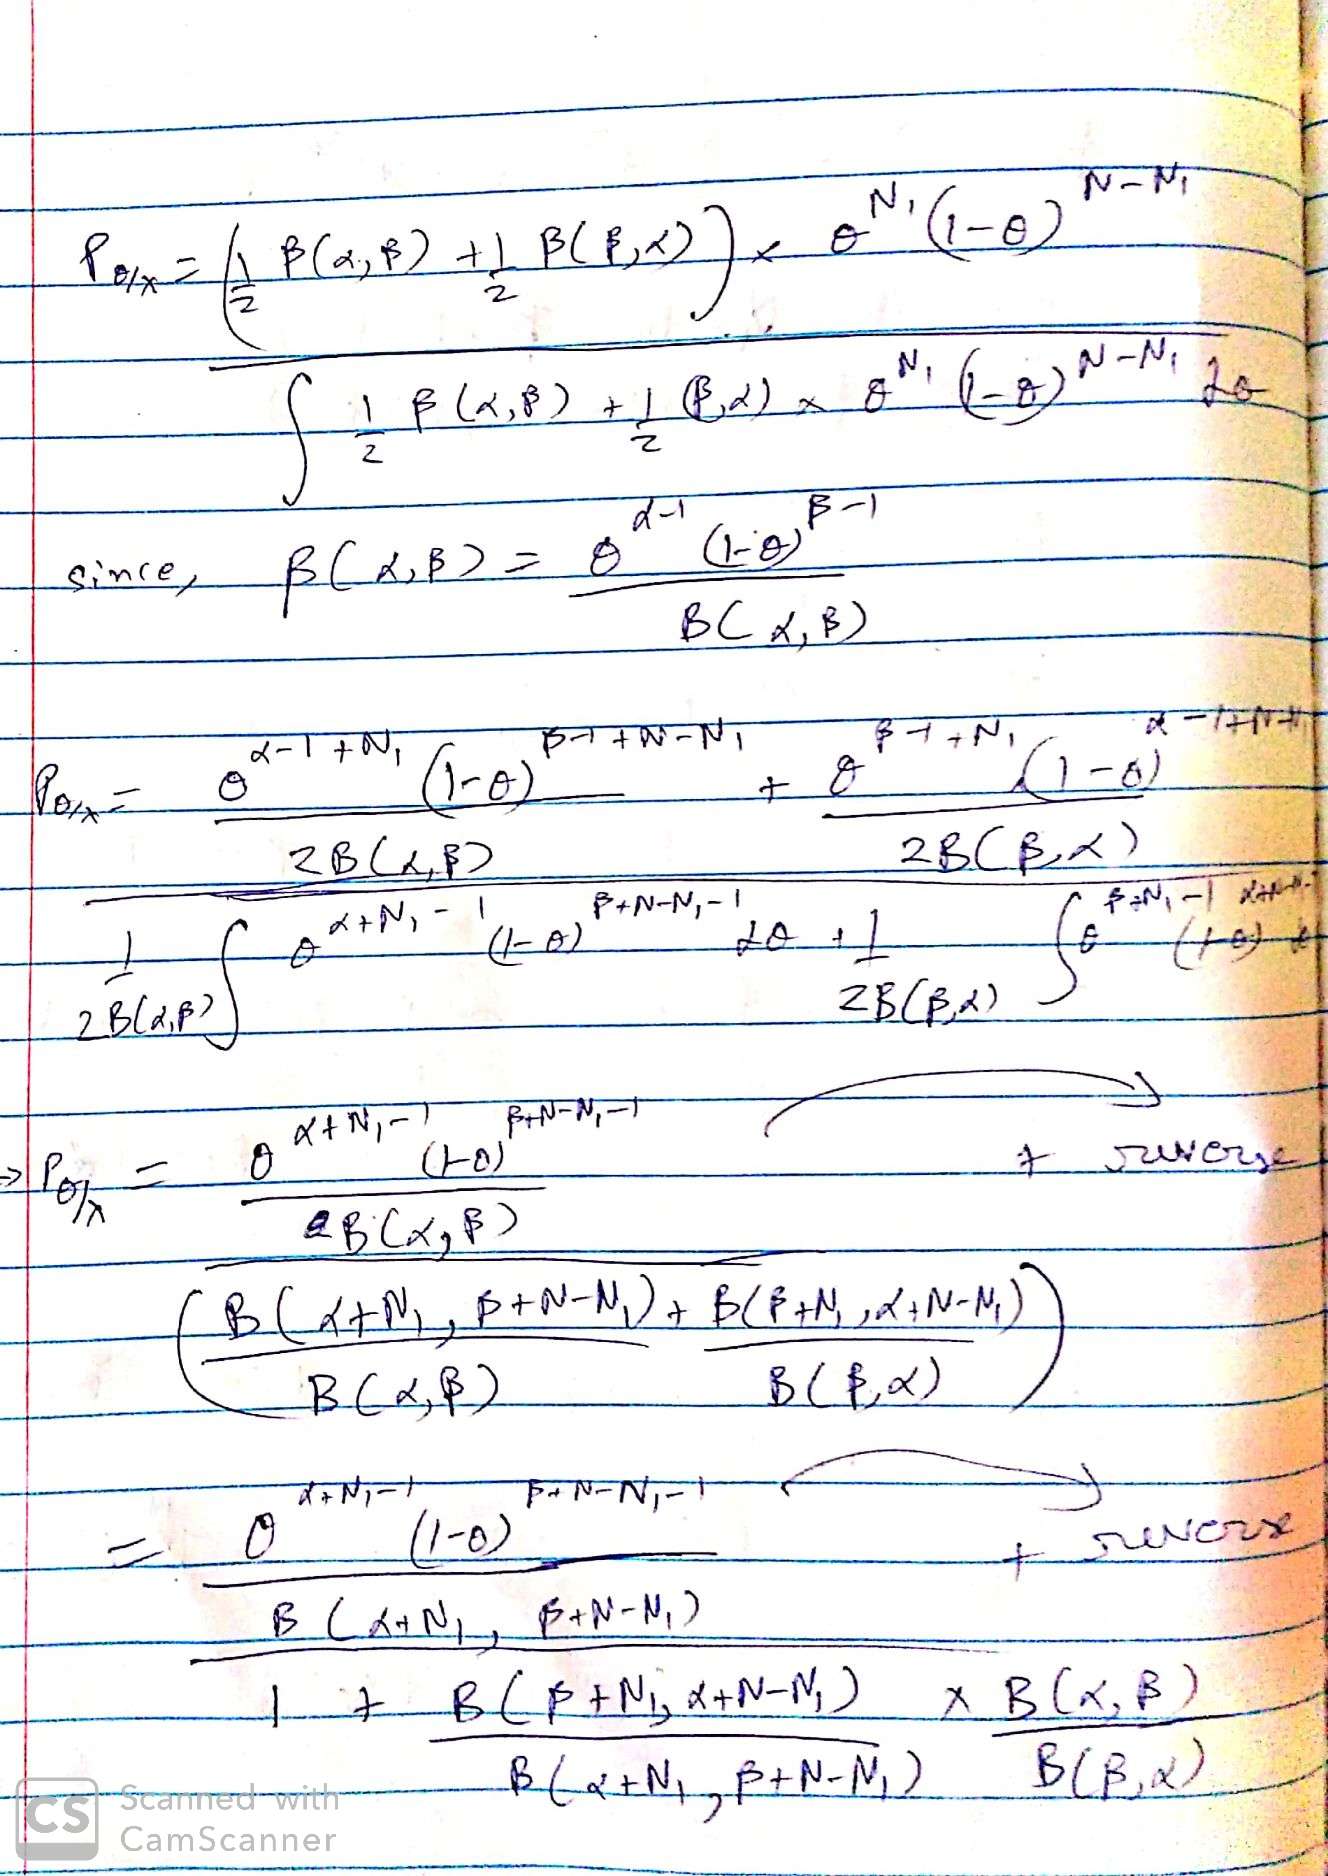 P_{θ/x} = (1/2 β(α,β) + 1/2 β(β,α)) × θ^{N₁} (1-θ)^{N-N₁}
∫ 1/2 β(α,β) + 1/2 (β,α) × θ^{N₁} (1-θ)^{N-N₁} dθ
since, β(α,β) = θ^{α-1} (1-θ)^{β-1}
B(α,β)
P_{θ/x} = θ^{α-1+N₁} (1-θ)^{β-1+N-N₁} + θ^{β-1+N₁} (1-θ)^{α-1+N-N₁}
2B(α,β) 2B(β,α)
1/2B(α,β) ∫ θ^{α+N₁-1} (1-θ)^{β+N-N₁-1} dθ + 1/2B(β,α) ∫ θ^{β+N₁-1} (1-θ)^{α+N-N₁-1}
→ P_{θ/x} = θ^{α+N₁-1} (1-θ)^{β+N-N₁-1} + reverse
B(α,β)
(B(α+N₁, β+N-N₁) + B(β+N₁, α+N-N₁))
B(α,β) B(β,α)
= θ^{α+N₁-1} (1-θ)^{β+N-N₁-1} + reverse
B(α+N₁, β+N-N₁)
1 + B(β+N₁, α+N-N₁) × B(α,β)
B(α+N₁, β+N-N₁) B(β,α)
CS Scanned with
CamScanner